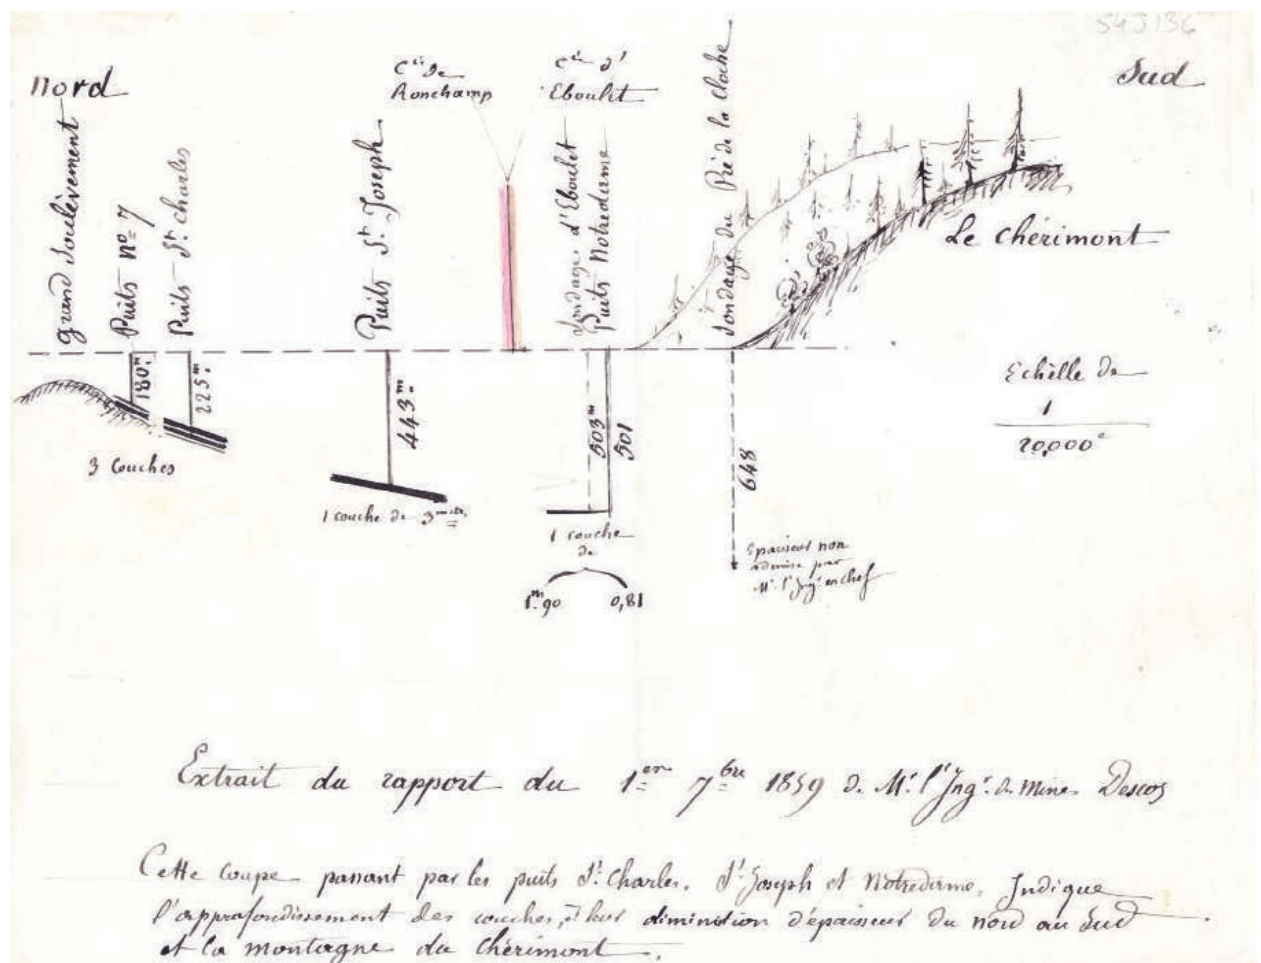 545136
Nord
Sud
Cie de
Ronchamp
Cie d'
Eboulet
grand Soulèvement
Puits no 7
Puits St Charles
Puits St Joseph
Sondage d'Eboulet
Puits Notredame
Sondage du Pré de la Cloche
Le Chérimont
180m
225m
443m
503m
501
648
3 Couches
1 couche de 3 mètres
1 couche
de
1m.90 0,81
Epaisseur non
admise par
Mr l'Ingr en chef
Echelle de
1
20,000e
Extrait du rapport du 1er 7bre 1859 de Mr l'Ingr des mines Descos
Cette Coupe passant par les puits St Charles, St Joseph et Notredame, Indique
l'approfondissement des couches, et leur diminution d'épaisseur du nord au Sud
et la montagne du Chérimont.